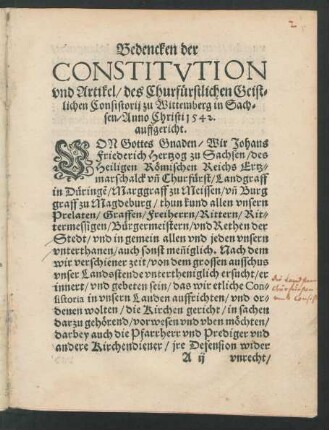 2
Bedencken der
CONSTITVTION
vnd Artikel / des Churfürstlichen Geist-
lichen Consistorij zu Wittemberg in Sach-
sen / Anno Christi 1542.
auffgericht.
VON Gottes Gnaden / Wir Johans
Friederich Hertzog zu Sachsen / des
Heiligen Römischen Reichs Ertz-
marschalck vñ Churfürst / Landgraff
in Düringẽ / Marggraff zu Meissen / vñ Burg
graff zu Magdeburg / thun kund allen vnsern
Prelaten / Graffen / Freiherrn / Rittern / Rit-
termessigen / Bürgermeistern / vnd Rethen der
Stedt / vnd in gemein allen vnd jeden vnsern
vnterthanen / auch sonst meñiglich. Nach dem
wir verschiener zeit / von dem grossen ausschus
vnser Landsstende vntertheniglich ersucht / er
innert / vnd gebeten sein / das wir etliche Con-
sistoria in vnsern Landen auffrichten / vnd or-
denen wolten / die Kirchen gericht / in sachen
darzu gehörend / vorwesen vnd vben möchten /
darbey auch die Pfarherr vnd Prediger vnd
andere Kirchendiener / jre Defension wider
A ij vnrecht /